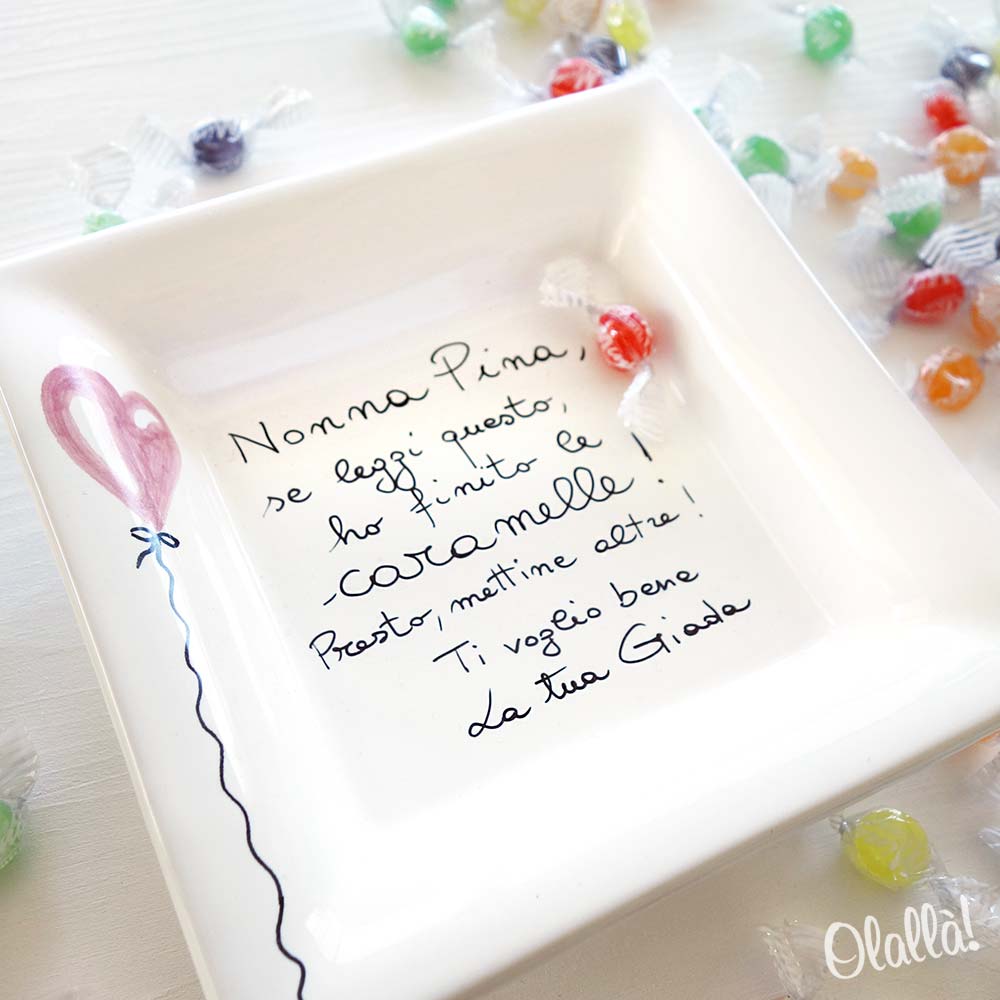 Nonna Pina,
se leggi questo,
ho finito le
caramelle!
Presto, mettine altre!
Ti voglio bene
La tua Giada
Olallà!